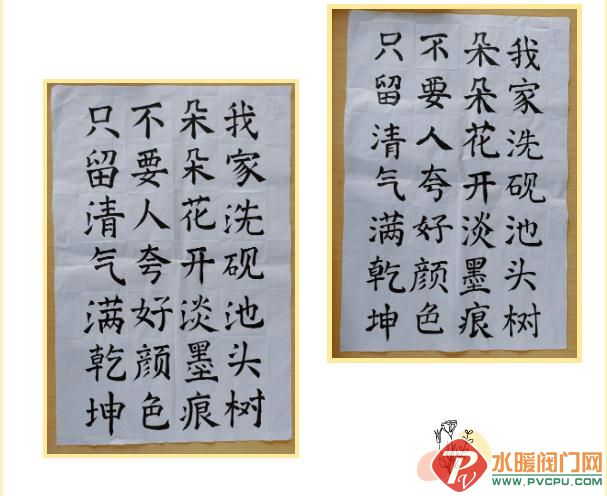 我家洗砚池头树
朵朵花开淡墨痕
不要人夸好颜色
只留清气满乾坤
我家洗砚池头树
朵朵花开淡墨痕
不要人夸好颜色
只留清气满乾坤
水暖阀门网
WWW.PVCPU.COM